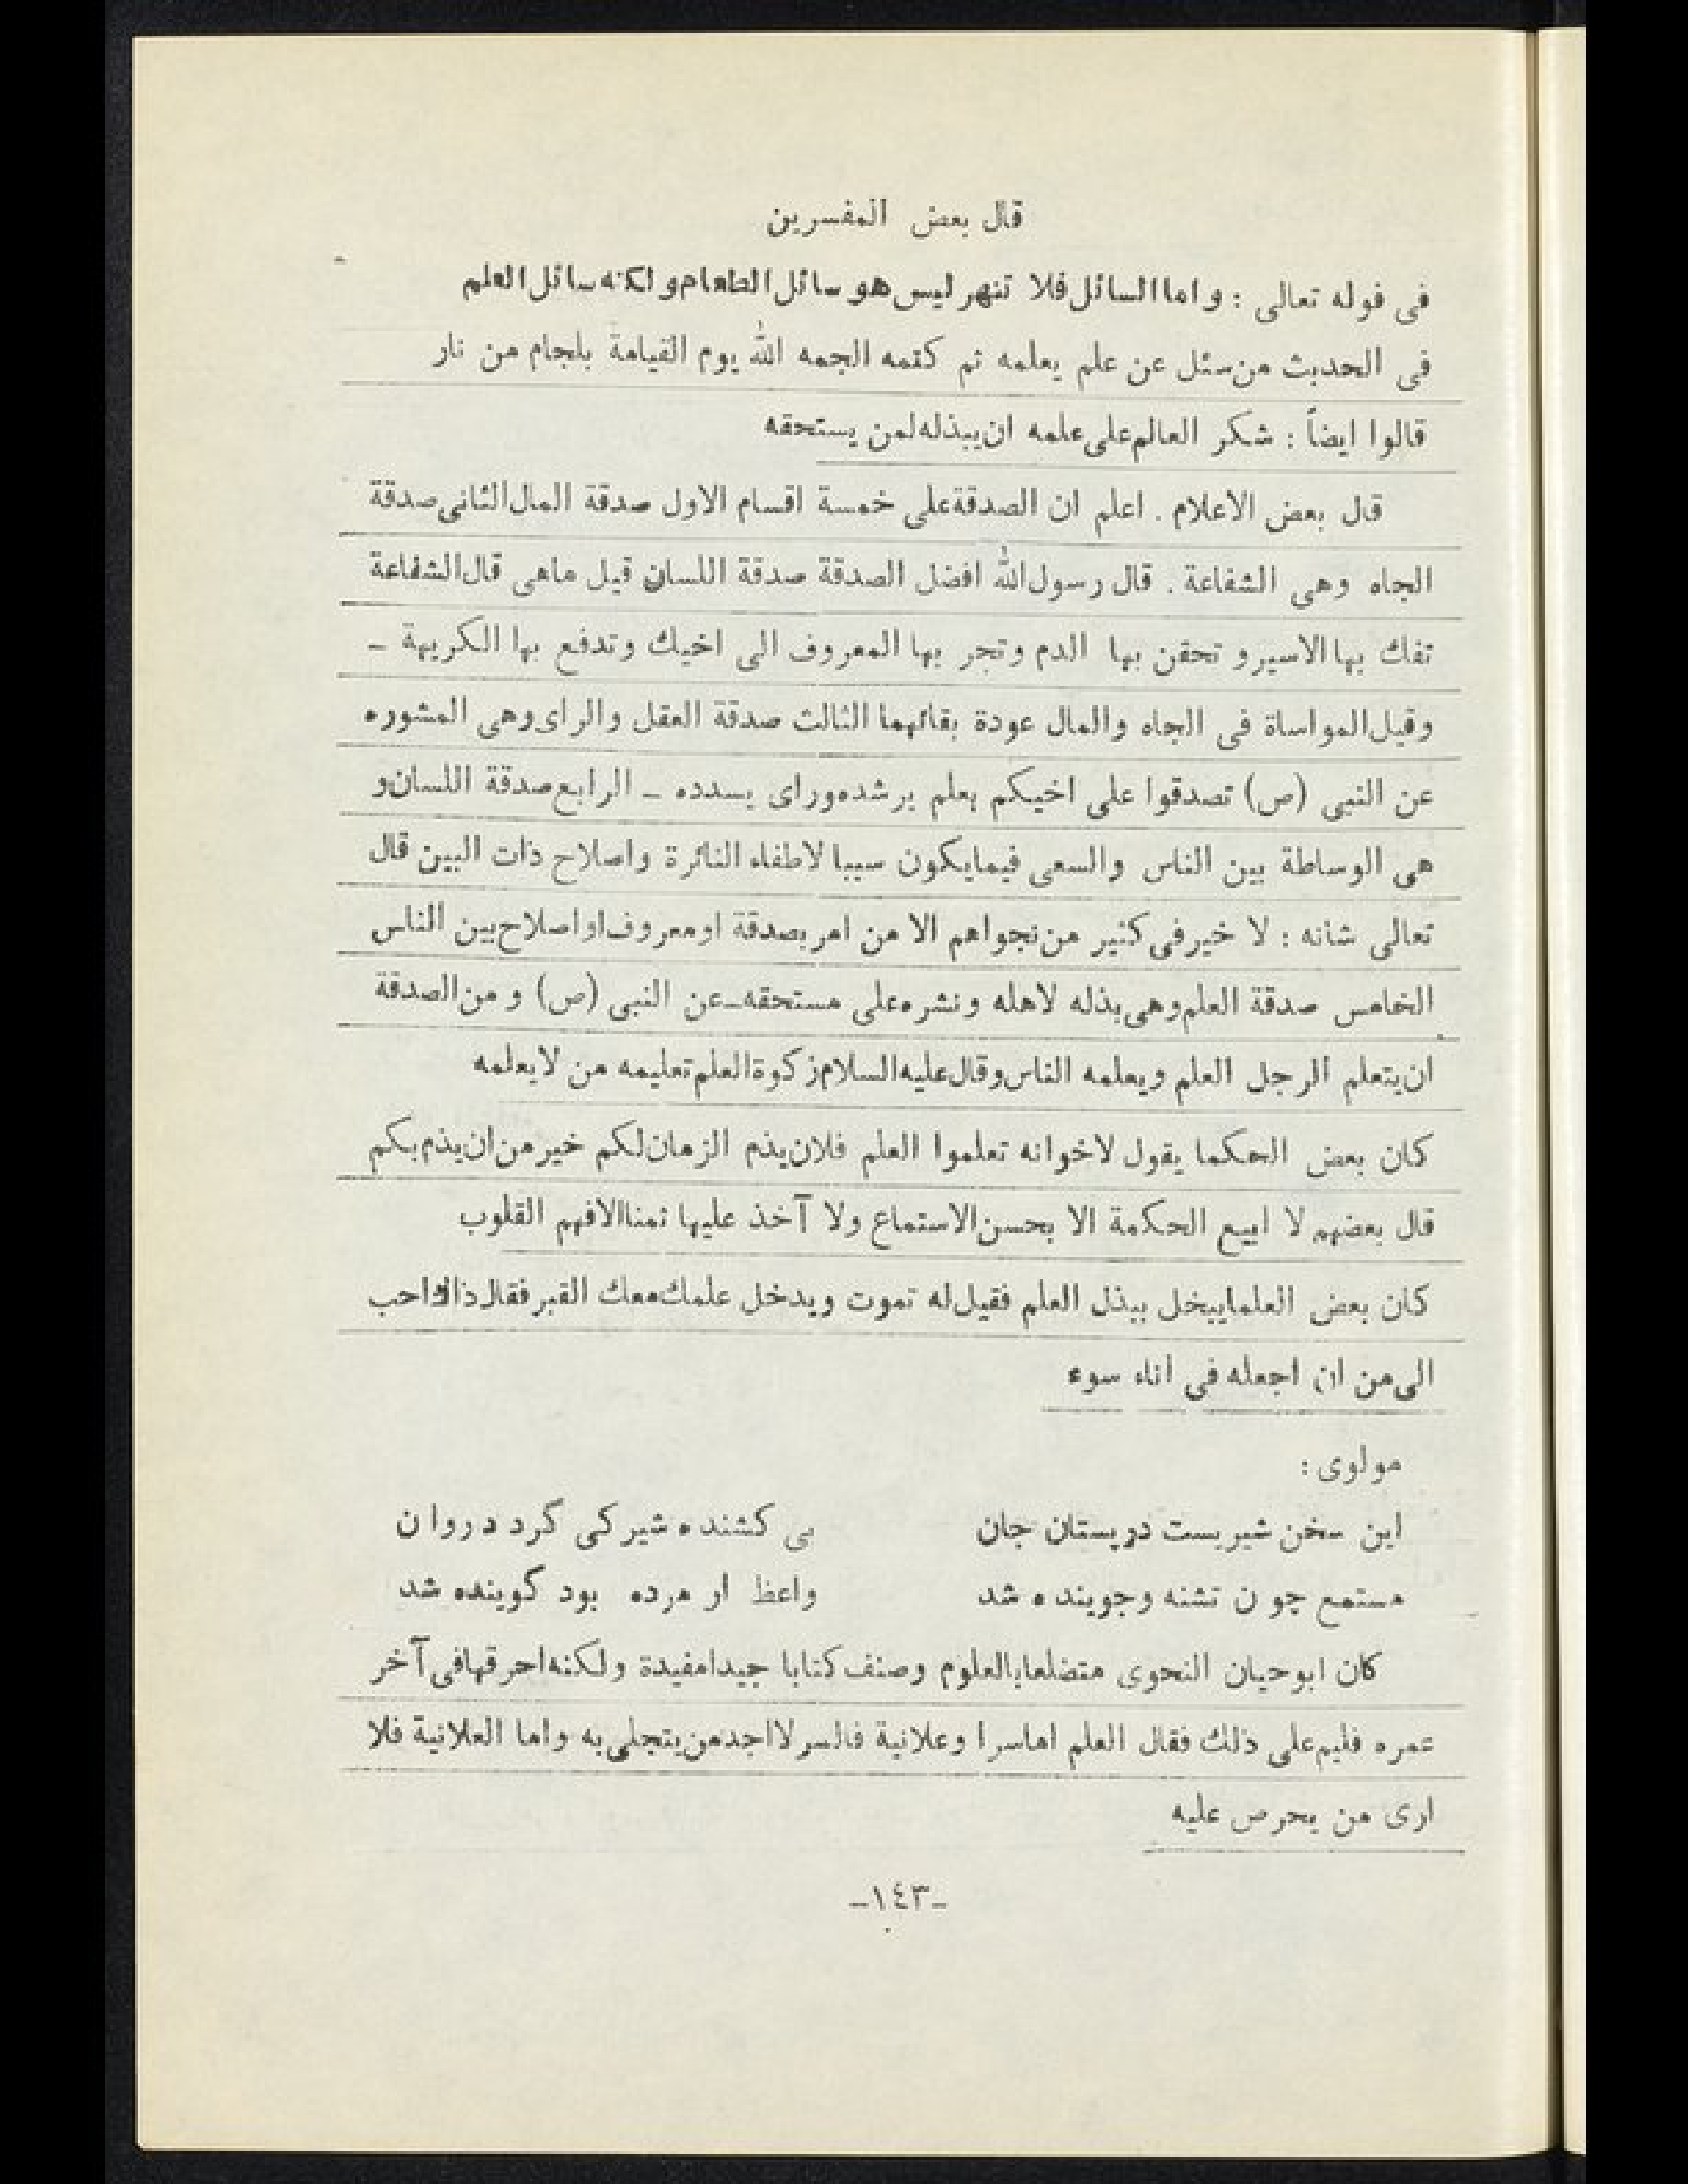 قال بعض المفسرين
فى قوله تعالى : واما السائل فلا تنهر ليس هو سائل الطعام ولكنه سائل العلم
فى الحديث من سئل عن علم يعلمه ثم كتمه الجمه الله يوم القيامة بلجام من نار
قالوا ايضاً : شكر العالم على علمه ان يبذله لمن يستحقه
قال بعض الاعلام . اعلم ان الصدقة على خمسة اقسام الاول صدقة المال الثانى صدقة
الجاه وهى الشفاعة . قال رسول الله افضل الصدقة صدقة اللسان قيل ماهى قال الشفاعة
تفك بها الاسير و تحقن بها الدم وتجر بها المعروف الى اخيك وتدفع بها الكريهة ـ
وقيل المواساة فى الجاه والمال عودة بقائهما الثالث صدقة العقل والراى وهى المشوره
عن النبى (ص) تصدقوا على اخيكم بعلم يرشده وراى يسدده ـ الرابع صدقة اللسان و
هى الوساطة بين الناس والسعى فيمايكون سببا لاطفاء النائرة واصلاح ذات البين قال
تعالى شانه : لا خير فى كثير من نجواهم الا من امر بصدقة او معروف او اصلاح بين الناس
الخامس صدقة العلم وهى بذله لاهله ونشره على مستحقه ـ عن النبى (ص) و من الصدقة
ان يتعلم الرجل العلم ويعلمه الناس وقال عليه السلام زكوة العلم تعليمه من لايعلمه
كان بعض الحكما يقول لاخوانه تعلموا العلم فلان يذم الزمان لكم خير من ان يذم بكم
قال بعضهم لا ابيع الحكمة الا بحسن الاستماع ولا آخذ عليها ثمنا الا فهم القلوب
كان بعض العلما يبخل ببذل العلم فقيل له تموت ويدخل علمك معك القبر فقال ذاك احب
الى من ان اجعله فى اناء سوء
مولوى :
اين سخن شيريست در پستان جان بى كشنده شير كى گردد روان
مستمع چون تشنه وجوينده شد واعظ ار مرده بود گوينده شد
كان ابوحيان النحوى متضلعا بالعلوم وصنف كتابا جيدا مفيدة ولكنه احرقها فى آخر
عمره فليم على ذلك فقال العلم اما سرا وعلانية فالسر لا اجد من يتجلى به واما العلانية فلا
ارى من يحرص عليه
ـ١٤٣ـ